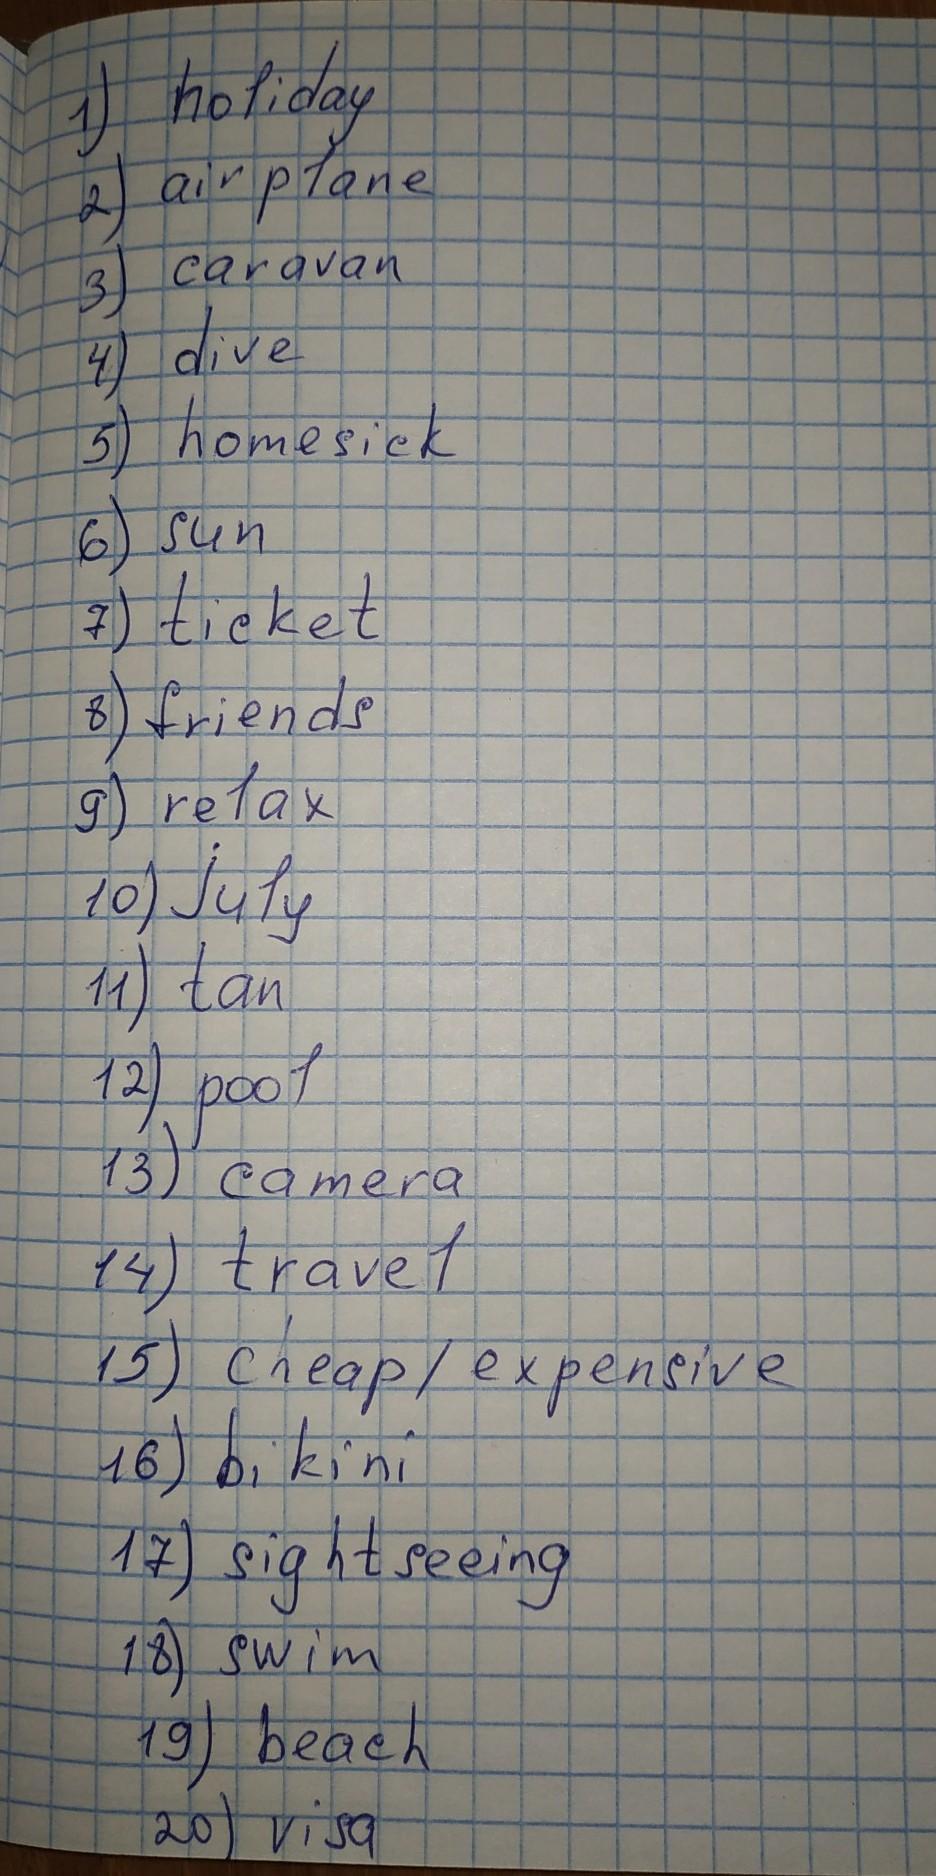 1) holiday
2) airplane
3) caravan
4) dive
5) homesick
6) sun
7) ticket
8) friends
9) relax
10) july
11) tan
12) pool
13) camera
14) travel
15) cheap/expensive
16) bikini
17) sightseeing
18) swim
19) beach
20) visa